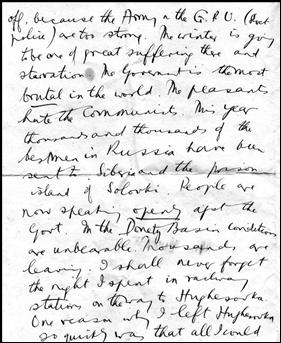 off, because the Army & the G.P.U. (Secret
police) are too strong. The winter is going
to be one of great suffering there and
starvation. The Government is the most
brutal in the world. The peasants
hate the Communists. This year
thousands and thousands of the
best men in Russia have been
sent to Siberia and the prison
island of Solovki. People are
now speaking openly agst the
Govt. In the Donetz Basin conditions
are unbearable. Thousands are
leaving. I shall never forget
the night I spent in railway
stations on the way to Hughesovka
One reason why I left Hughesovka
so quickly was that all I could